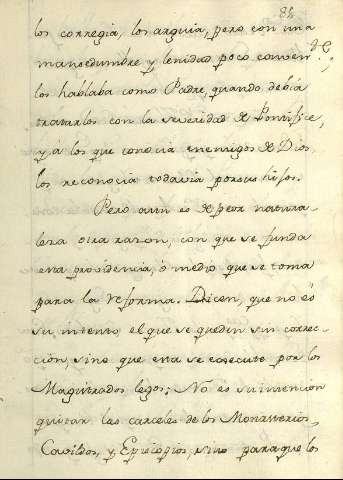 84
los corregia, los arguia, pero con una
mansedumbre y lenidad poco conven.te;
los hablaba como Padre, quando debia
tratarlos con la severidad de Pontifice,
y a los que conocia enemigos de Dios
los reconocia todavia por sus hijos.
Pero aun es de peor natura
leza otra razon, con que se funda
esta providencia, ó medio que se toma
para la reforma. Dicen, que no es
su intento el que se queden sin correc-
cion, sino que esta se execute por los
Magistrados legos; No es su intencion
quitar las carceles de los Monasterios,
Cavildos, y Episcopios, sino para que los